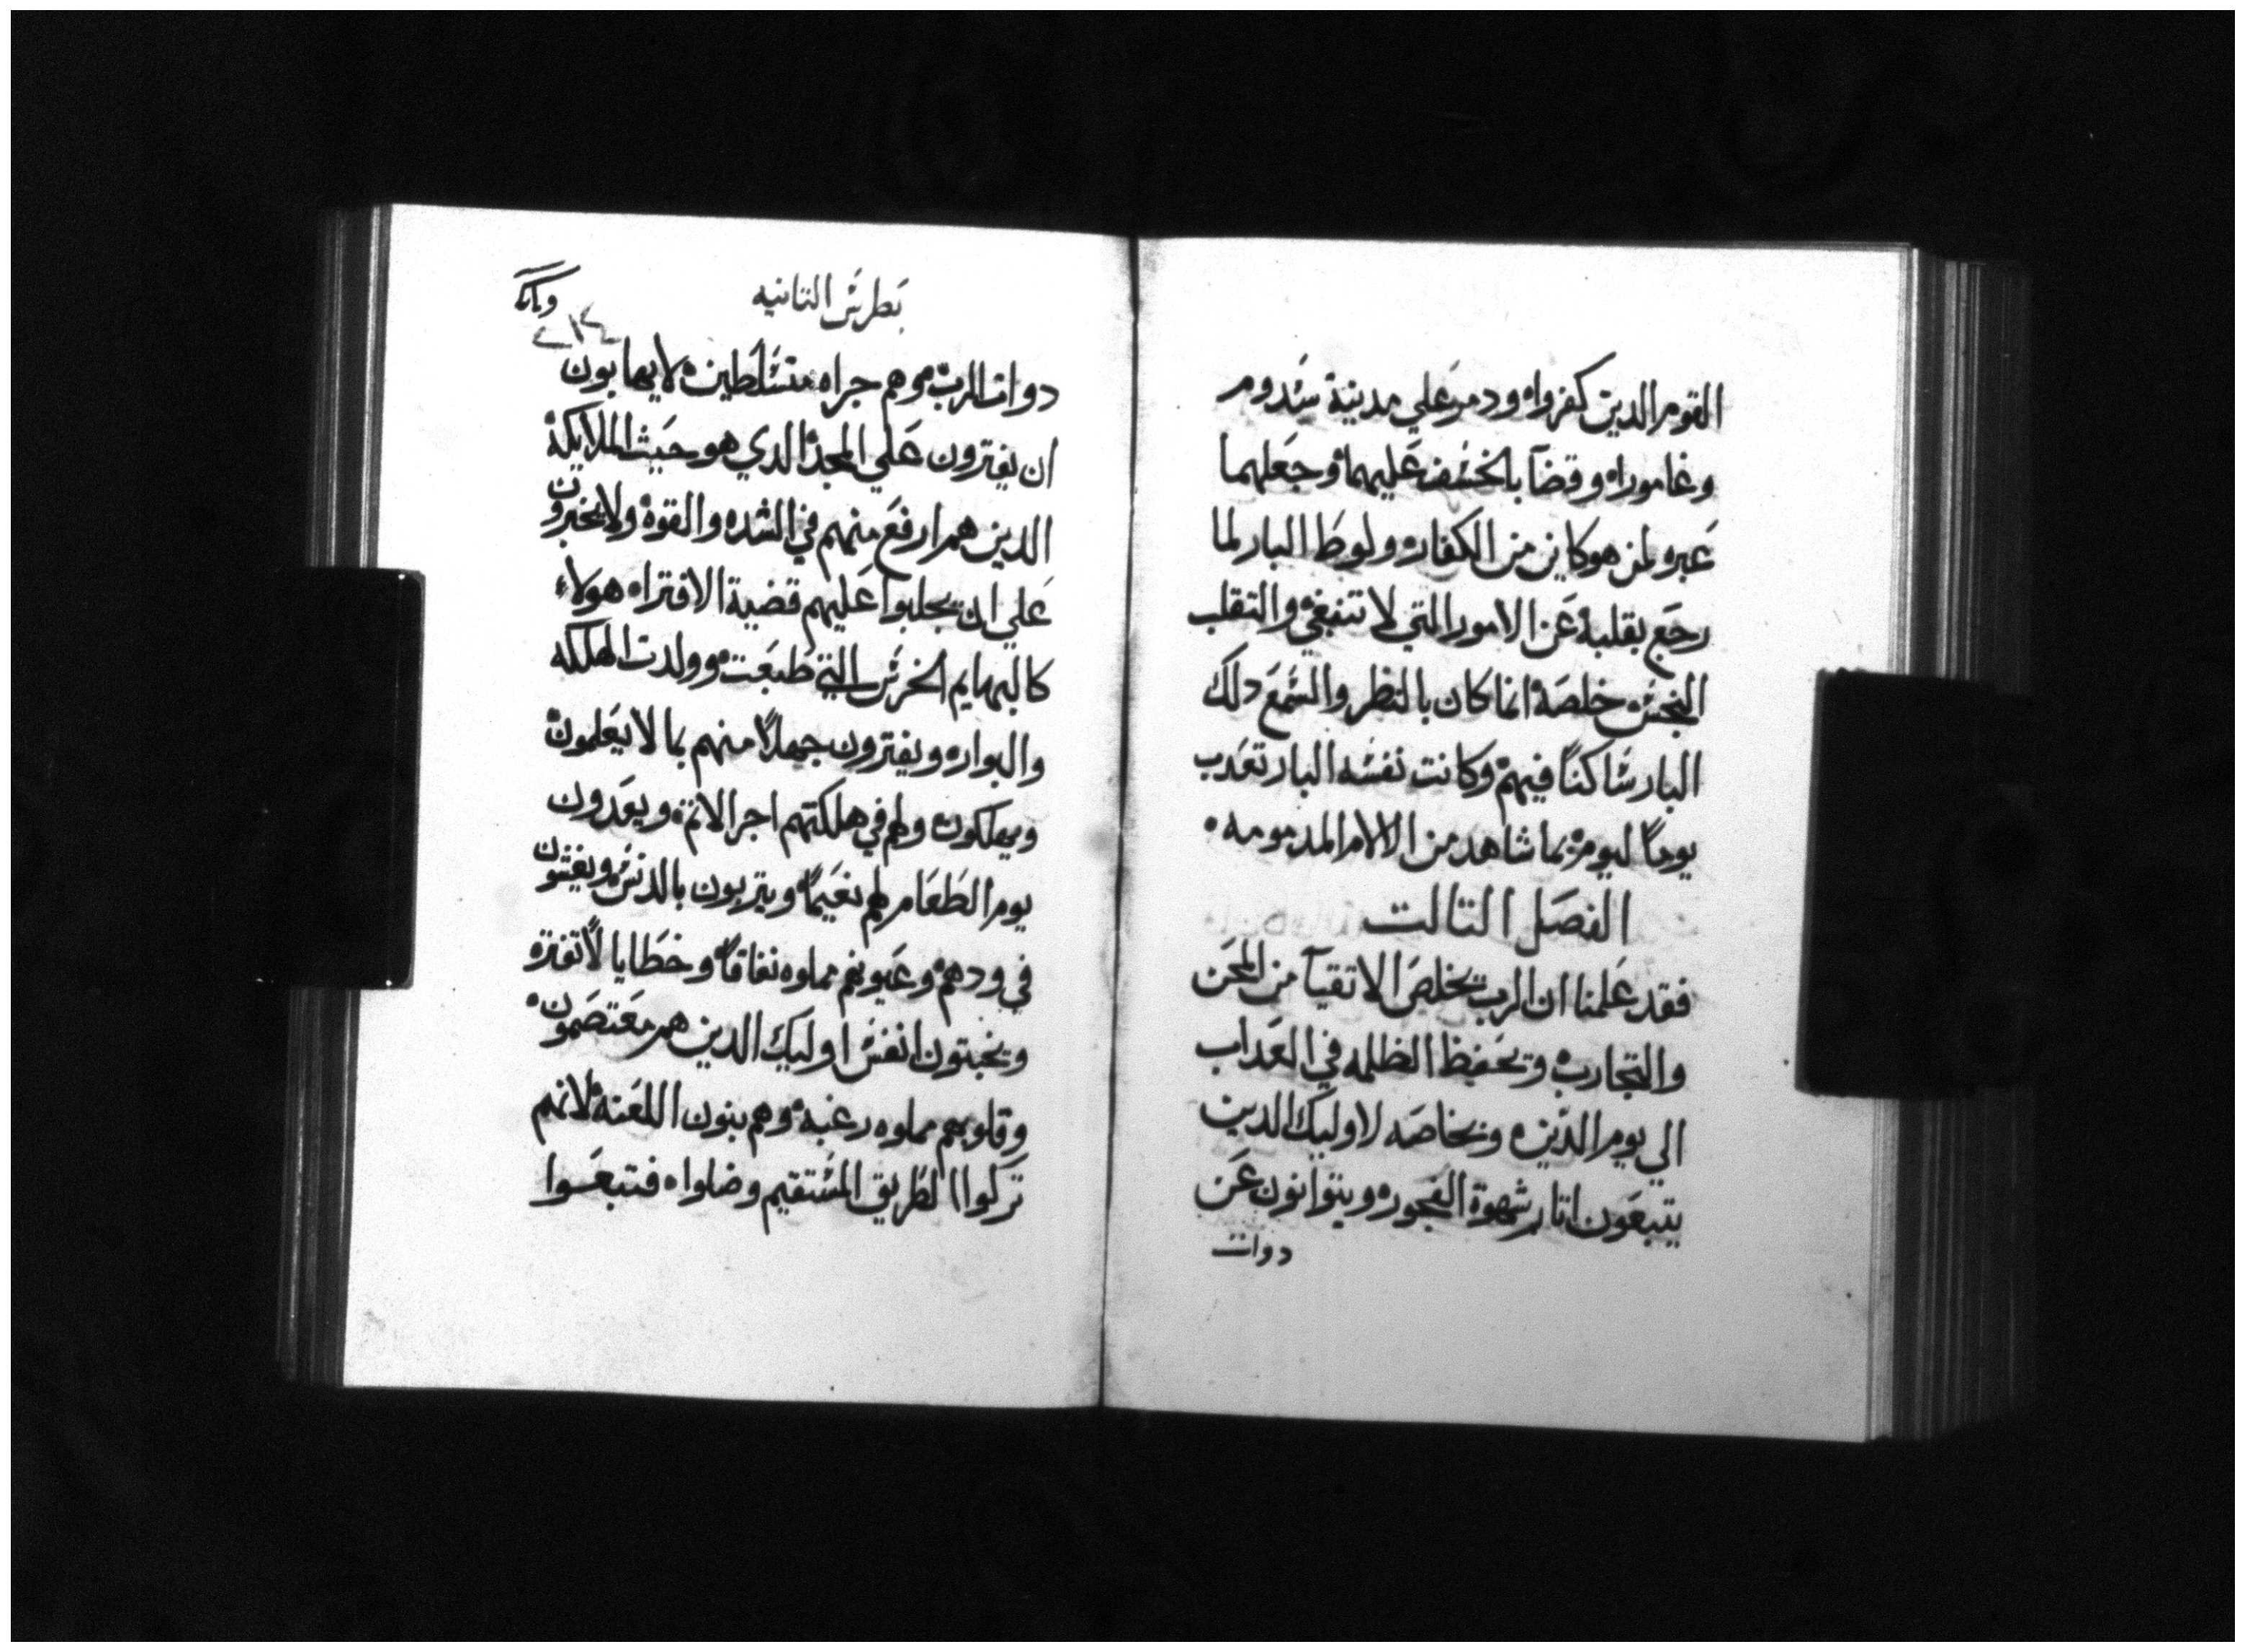 القوم الدين كفروا، ودمر علي مدينة سدوم
وغامورا، وقضا بالخسف عليهما وجعلهما
عبره لمن هو كاين من الكفار، ولوط البار لما
رجع بقلبه عن الامور التي لا تنبغي والتقلب
النجس خلصه انما كان بالنظر والسمع دلك
البار ساكنًا فيهم وكانت نفسه البار تعدب
يومًا ليوم بما شاهد من الالام المدمومه.
الفصل التالت
فقد علمنا ان الرب يخلص الاتقيا من المحن
والتجارب، ويحفظ الظلمه في العداب
الي يوم الدين، وبخاصه لاوليك الدين
يتبعون اتار شهوة الفجور، ويتوانون عن
دوات
بطرس التانيه
دوات الرب، وهم جراه متسلطين، لا يهابون
ان يفترون علي المجد الدي هو حيث الملايكة
الدين هم ارفع منهم في الشده والقوة ولا يخبرون
علي ان يجلبوا عليهم قضية الافترا، هولاء
كالبهايم الخرس التي طبعت وولدت الهلكه
والبوار، ويفترون جهلاً منهم بما لا يعلمون
ويهلكون، ولهم في هلكتهم اجر الاتم، ويعدون
يوم الطعام لهم نعيمًا ويتربون بالدنس، ويفتنون
في ودهم، وعيونهم مملوه نفاقًا وخطايا لا تفتره
ويخبتون انفس اوليك الدين هم معتصمون،
وقلوبهم مملوه رغبة، وهم بنون اللعنة لانهم
تركوا الطريق المستقيم وضلوا، فتبعوا